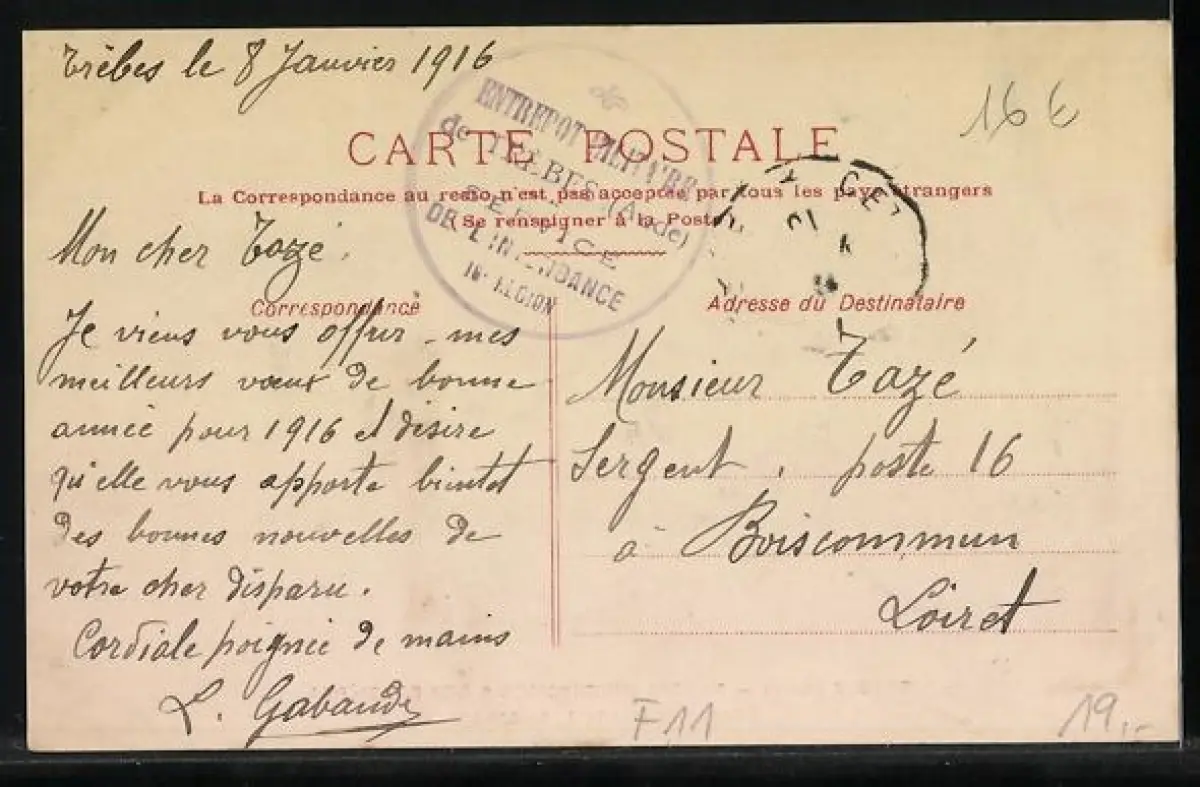 Trèbes le 8 Janvier 1916
16 €
CARTE POSTALE
La Correspondance au recto n'est pas acceptée par tous les pays étrangers
(Se renseigner à la Poste)
ENTREPOT MILITAIRE
de TRÈBES (Aude)
SERVICE
DE L'INTENDANCE
16e REGION
Mon cher Tazé.
Correspondance
Je viens vous offrir mes
meilleurs vœux de bonne
année pour 1916 et désire
qu'elle vous apporte bientot
des bonnes nouvelles de
votre cher disparu.
Cordiale poignée de mains
L. Gabaude
Adresse du Destinataire
Monsieur Tazé
Sergent. poste 16
à Boiscommun
Loiret
F11
19,-